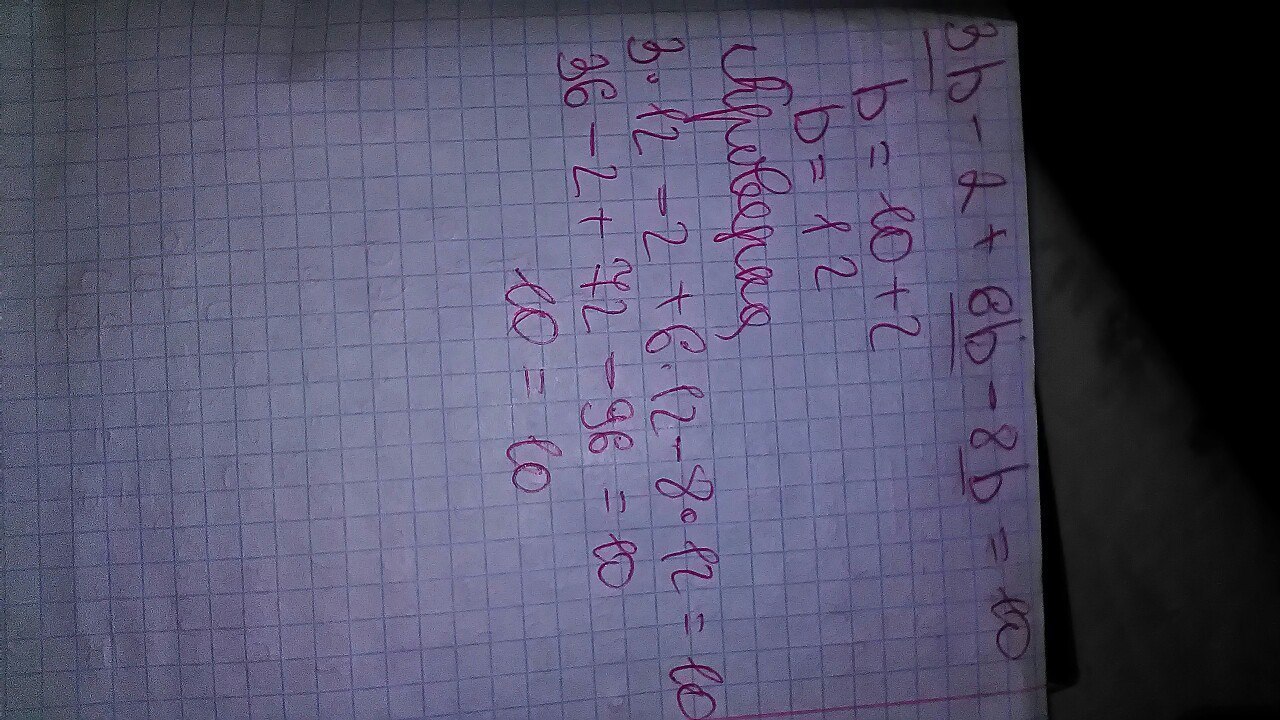 3b - 2 + 6b - 8b = 10
b = 10 + 2
b = 12
Провераq
3 · 12 - 2 + 6 · 12 - 8 · 12 = 10
36 - 2 + 72 - 96 = 10
10 = 10